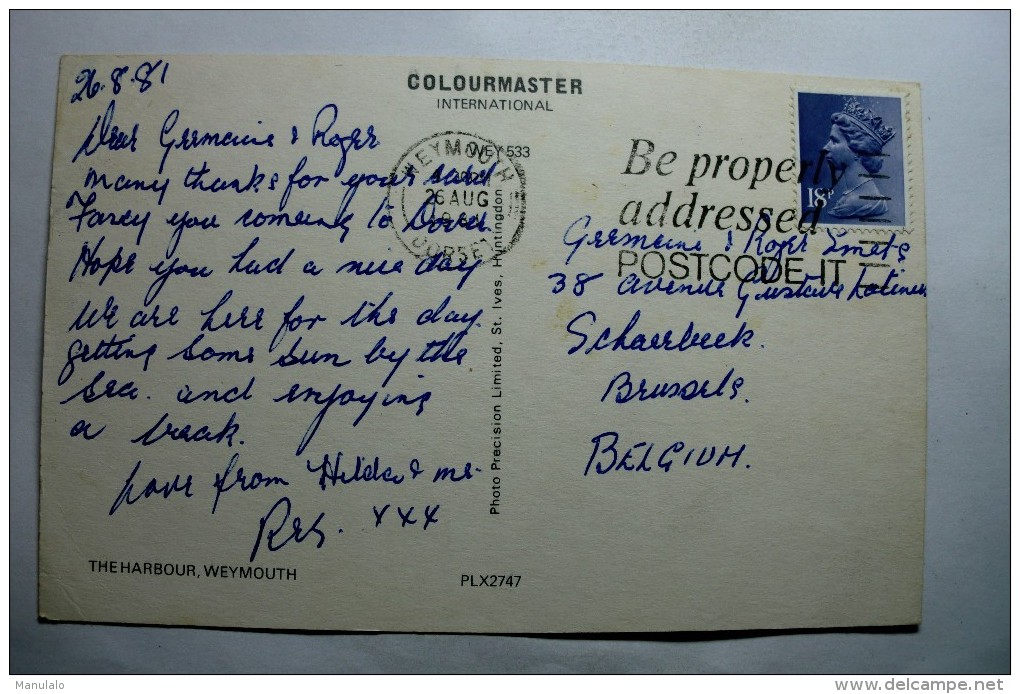 26.8.81
COLOURMASTER
INTERNATIONAL
Dear Germaine & Roger
many thanks for your card
Fancy you coming to Dover
Hope you had a nice day
We are here for the day.
getting some sun by the
sea. and enjoying
a break.
Love from Hilda & me.
xxx
THE HARBOUR, WEYMOUTH
WEY 533
Photo Precision Limited, St. Ives, Huntingdon
PLX2747
WEYMOUTH
26 AUG
DORSET
Be properly
addressed
POSTCODE IT
18P
Germaine & Roger Smets
38 Avenue Gustave Latinis
Schaerbeek.
Brussels.
BELGIUM.
Manulalo